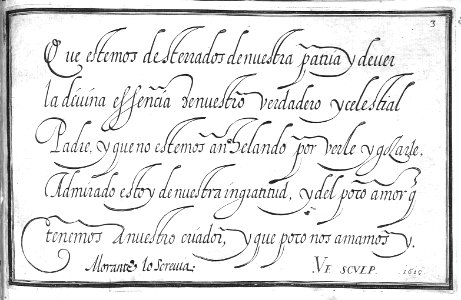 3
Que estemos desterrados denuestra patria y dever
la divina essençia denuestro verdadero y celestial
Padre, y que no estemos anhelando por verle y gozarle.
Admirado estoy de nuestra ingratitud, y del poco amor q̃
tenemos a nuestro criador, y que poco nos amamos y.
Morante lo Screvia. VE SCVLP. 1615